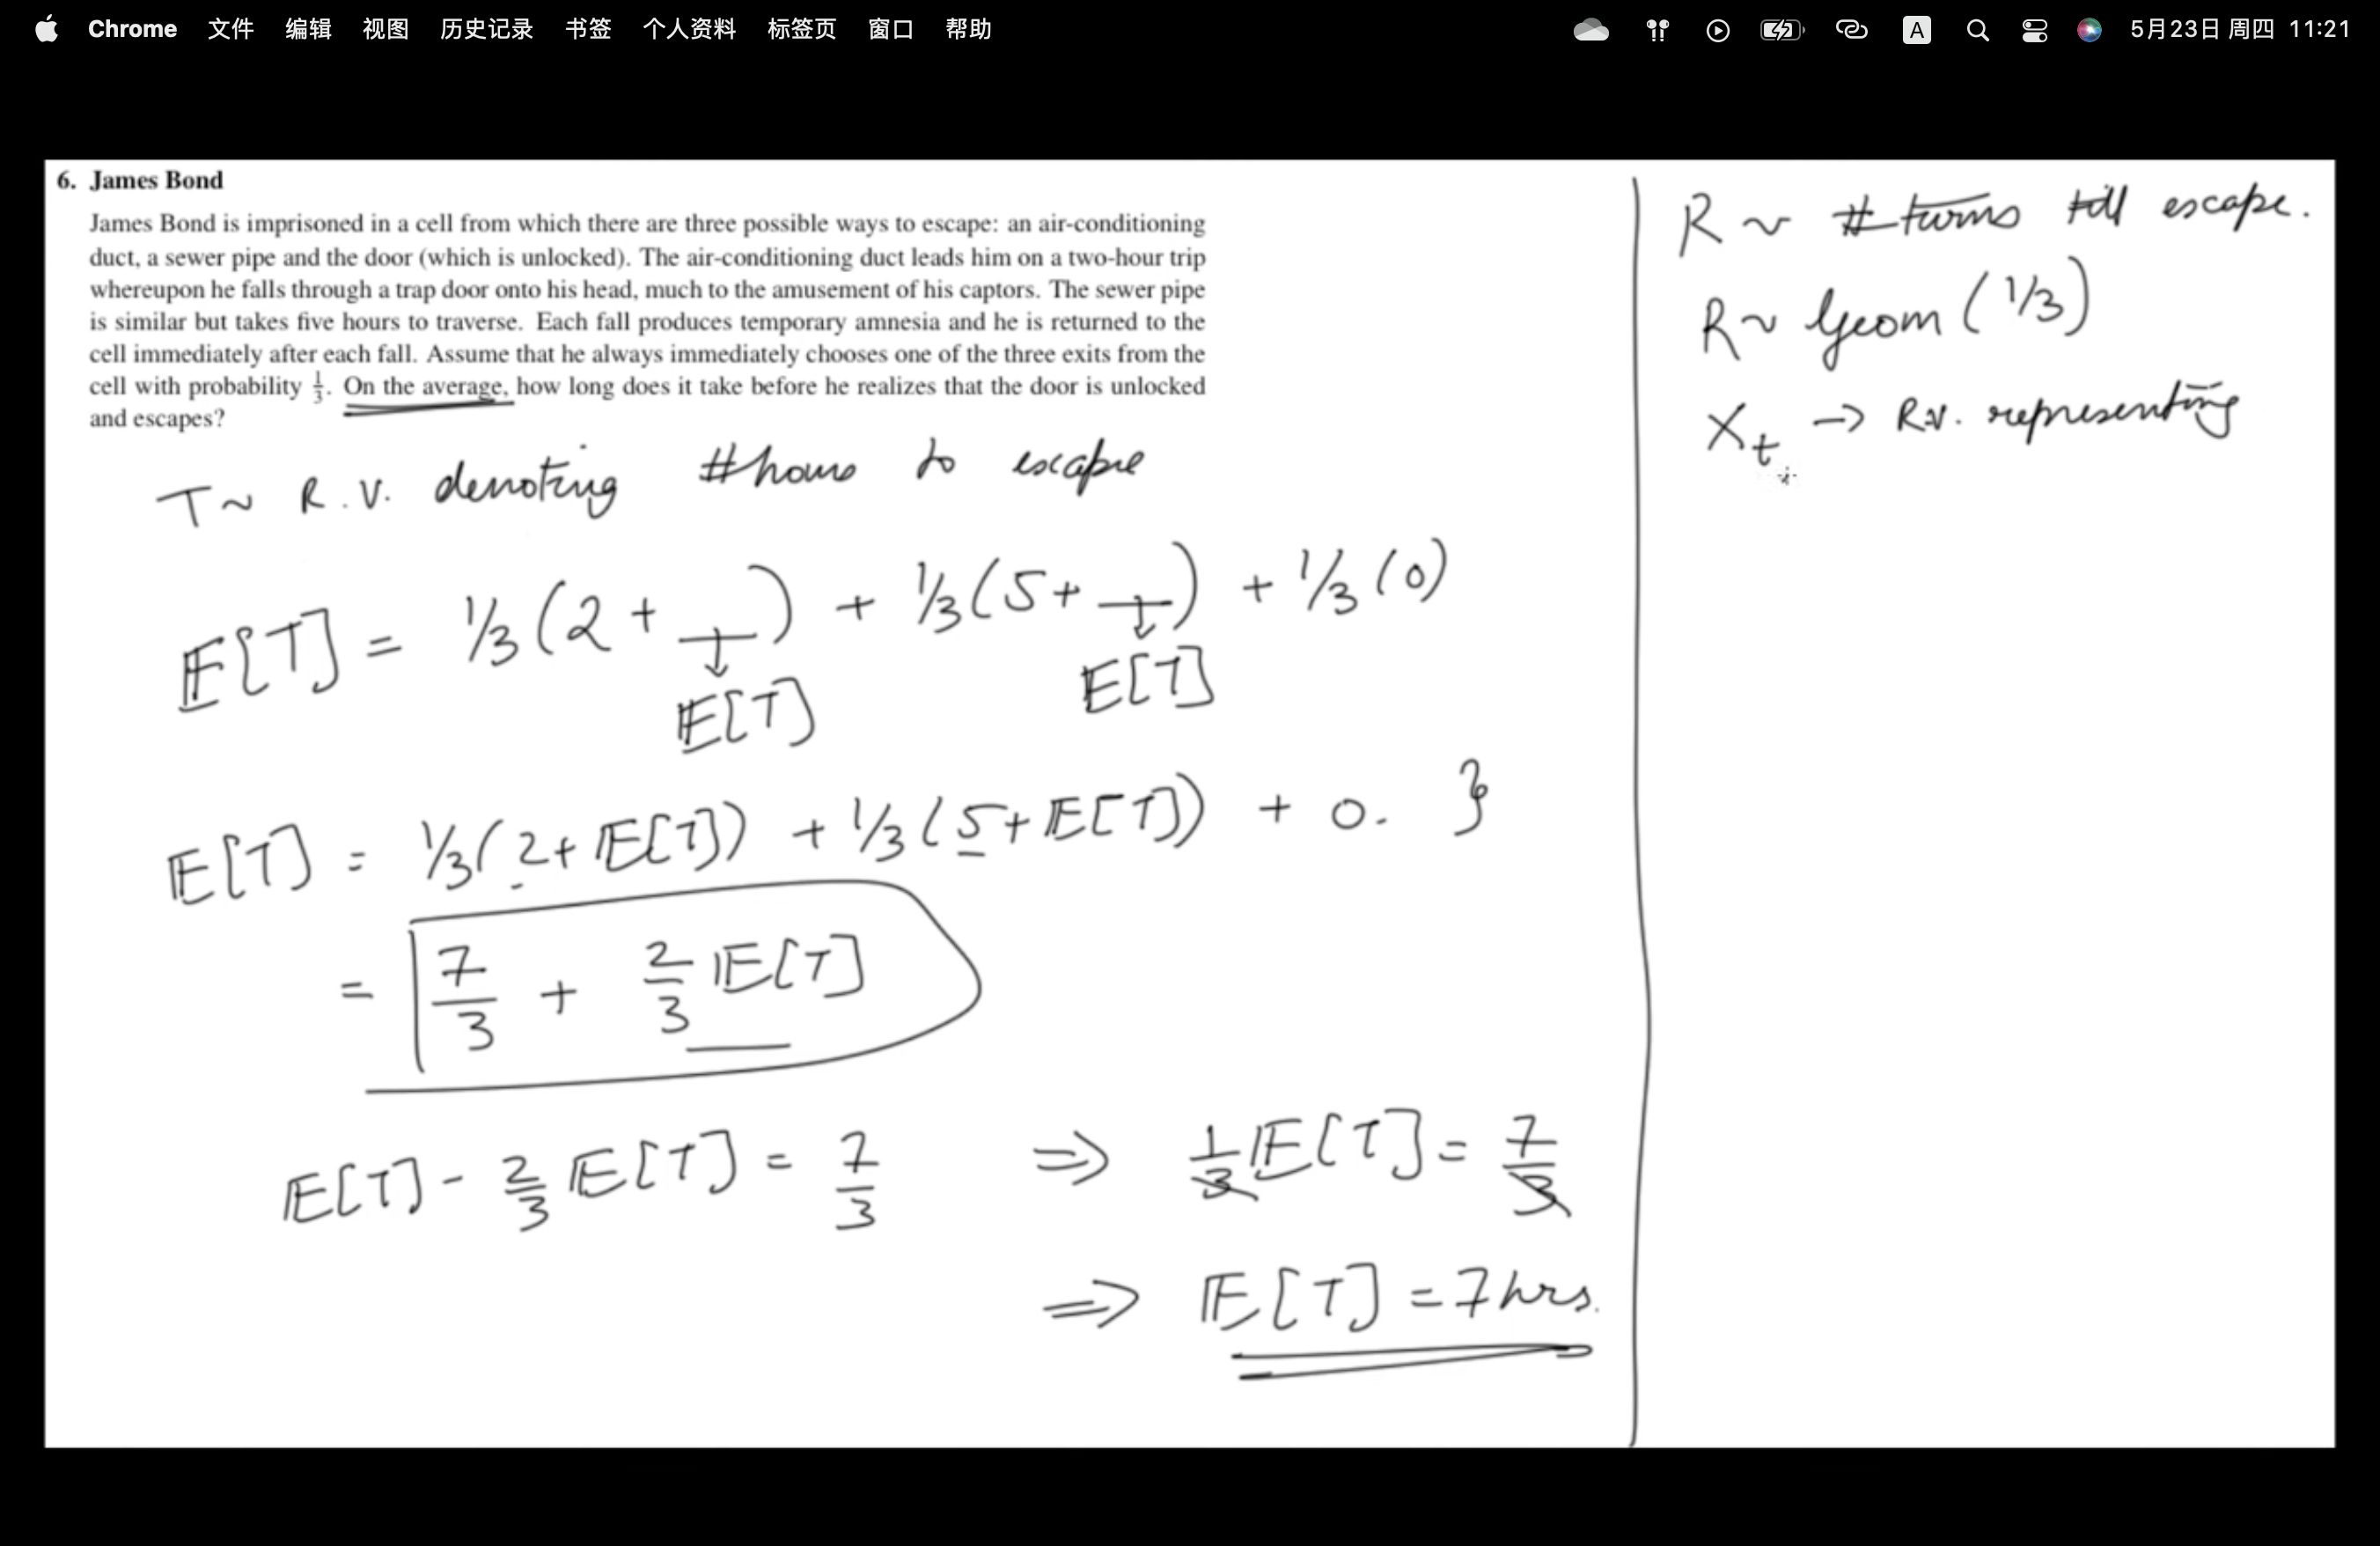 Chrome 文件 编辑 视图 历史记录 书签 个人资料 标签页 窗口 帮助 A 5月23日 周四 11:21
6. James Bond
James Bond is imprisoned in a cell from which there are three possible ways to escape: an air-conditioning
duct, a sewer pipe and the door (which is unlocked). The air-conditioning duct leads him on a two-hour trip
whereupon he falls through a trap door onto his head, much to the amusement of his captors. The sewer pipe
is similar but takes five hours to traverse. Each fall produces temporary amnesia and he is returned to the
cell immediately after each fall. Assume that he always immediately chooses one of the three exits from the
cell with probability 1/3. On the average, how long does it take before he realizes that the door is unlocked
and escapes?
T ~ R.V. denoting #hours to escape
E[T] = 1/3(2 + _) + 1/3(5 + _) + 1/3(0)
E[T] E[T]
E[T] = 1/3(2 + E[T]) + 1/3(5 + E[T]) + 0. }
= 7/3 + 2/3 E[T]
E[T] - 2/3 E[T] = 7/3 ⇒ 1/3 E[T] = 7/3
⇒ E[T] = 7 hrs.
R ~ # turns till escape.
R ~ Geom (1/3)
X_t → R.V. representing